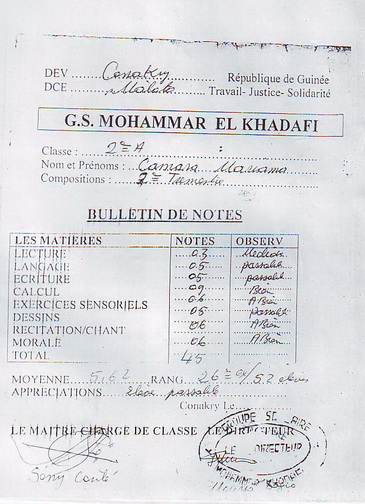 DEV Conakry République de Guinée
DCE Matoto Travail- Justice- Solidarité
G.S. MOHAMMAR EL KHADAFI
Classe : 2ème A :
Nom et Prénoms : Camara Mariama
Compositions : 2ème Trimestre
BULLETIN DE NOTES
LES MATIERES NOTES OBSERV
LECTURE 03 Médiocre
LANGAGE 05 passable
ECRITURE 05 passable
CALCUL 09 Bien
EXERCICES SENSORIELS 06 ABien
DESSINS 05 passable
RECITATION/CHANT 06 ABien
MORALE 06 ABien
TOTAL 45
MOYENNE 5,62 RANG 26ème /52 élèves
APPRECIATIONS Elève passable
Conakry Le
LE MAITRE CHARGE DE CLASSE LE DIRECTEUR
GROUPE SCOLAIRE
LE DIRECTEUR
MOHAMMAR KHADAFI
Sény Conté